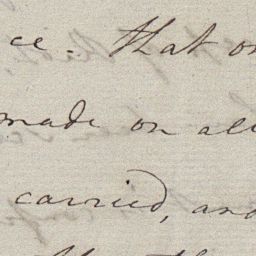 ce. that on
made on all
carried, and